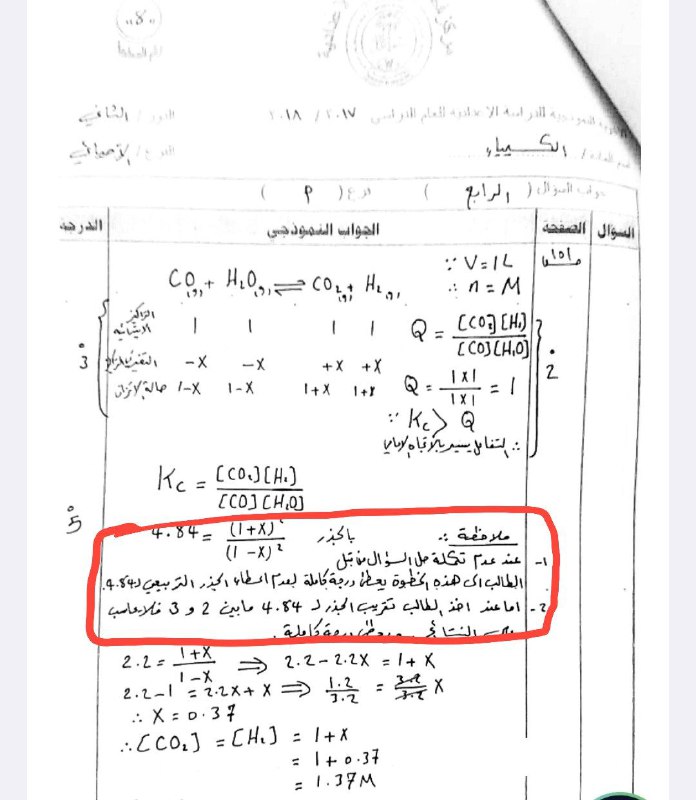 ٨
الدور / الثاني
للدراسة الاعدادية للعام الدراسي ٢٠١٧ / ٢٠١٨
الكيمياء
الفرع / الأحيائي
جواب السؤال ( الرابع ) فرع ( P )
السؤال الصفحة الجواب النموذجي الدرجة
∵ V = 1L
∴ n = M
CO(g) + H2O(g) ⇌ CO2(g) + H2(g)
التراكيز الابتدائية 1 1 1 1
-X -X +X +X
حالة الاتزان 1-X 1-X 1+X 1+X
3
Q = [CO2][H2] / [CO][H2O]
Q = 1x1 / 1x1 = 1
2
∵ Kc > Q
∴ التفاعل يسير بالاتجاه الامامي
Kc = [CO2][H2] / [CO][H2O]
5
4.84 = (1+X)² / (1-X)² بالجذر
ملاحظة :
1- عند عدم تكملة حل السؤال من قبل
الطالب الى هذه الخطوة يعطى درجة كاملة لعدم اعطاء الجذر التربيعي لـ 4.84.
2- اما عند اخذ الطالب تقريب الجذر لـ 4.84 مابين 2 و 3 فلا يحاسب
النتائج ويعطى درجة كاملة .
2.2 = 1+X / 1-X ⇒ 2.2 - 2.2X = 1 + X
2.2 - 1 = 2.2X + X ⇒ 1.2 / 3.2 = 3.2 / 3.2 X
∴ X = 0.37
∴ [CO2] = [H2] = 1 + X
= 1 + 0.37
= 1.37 M